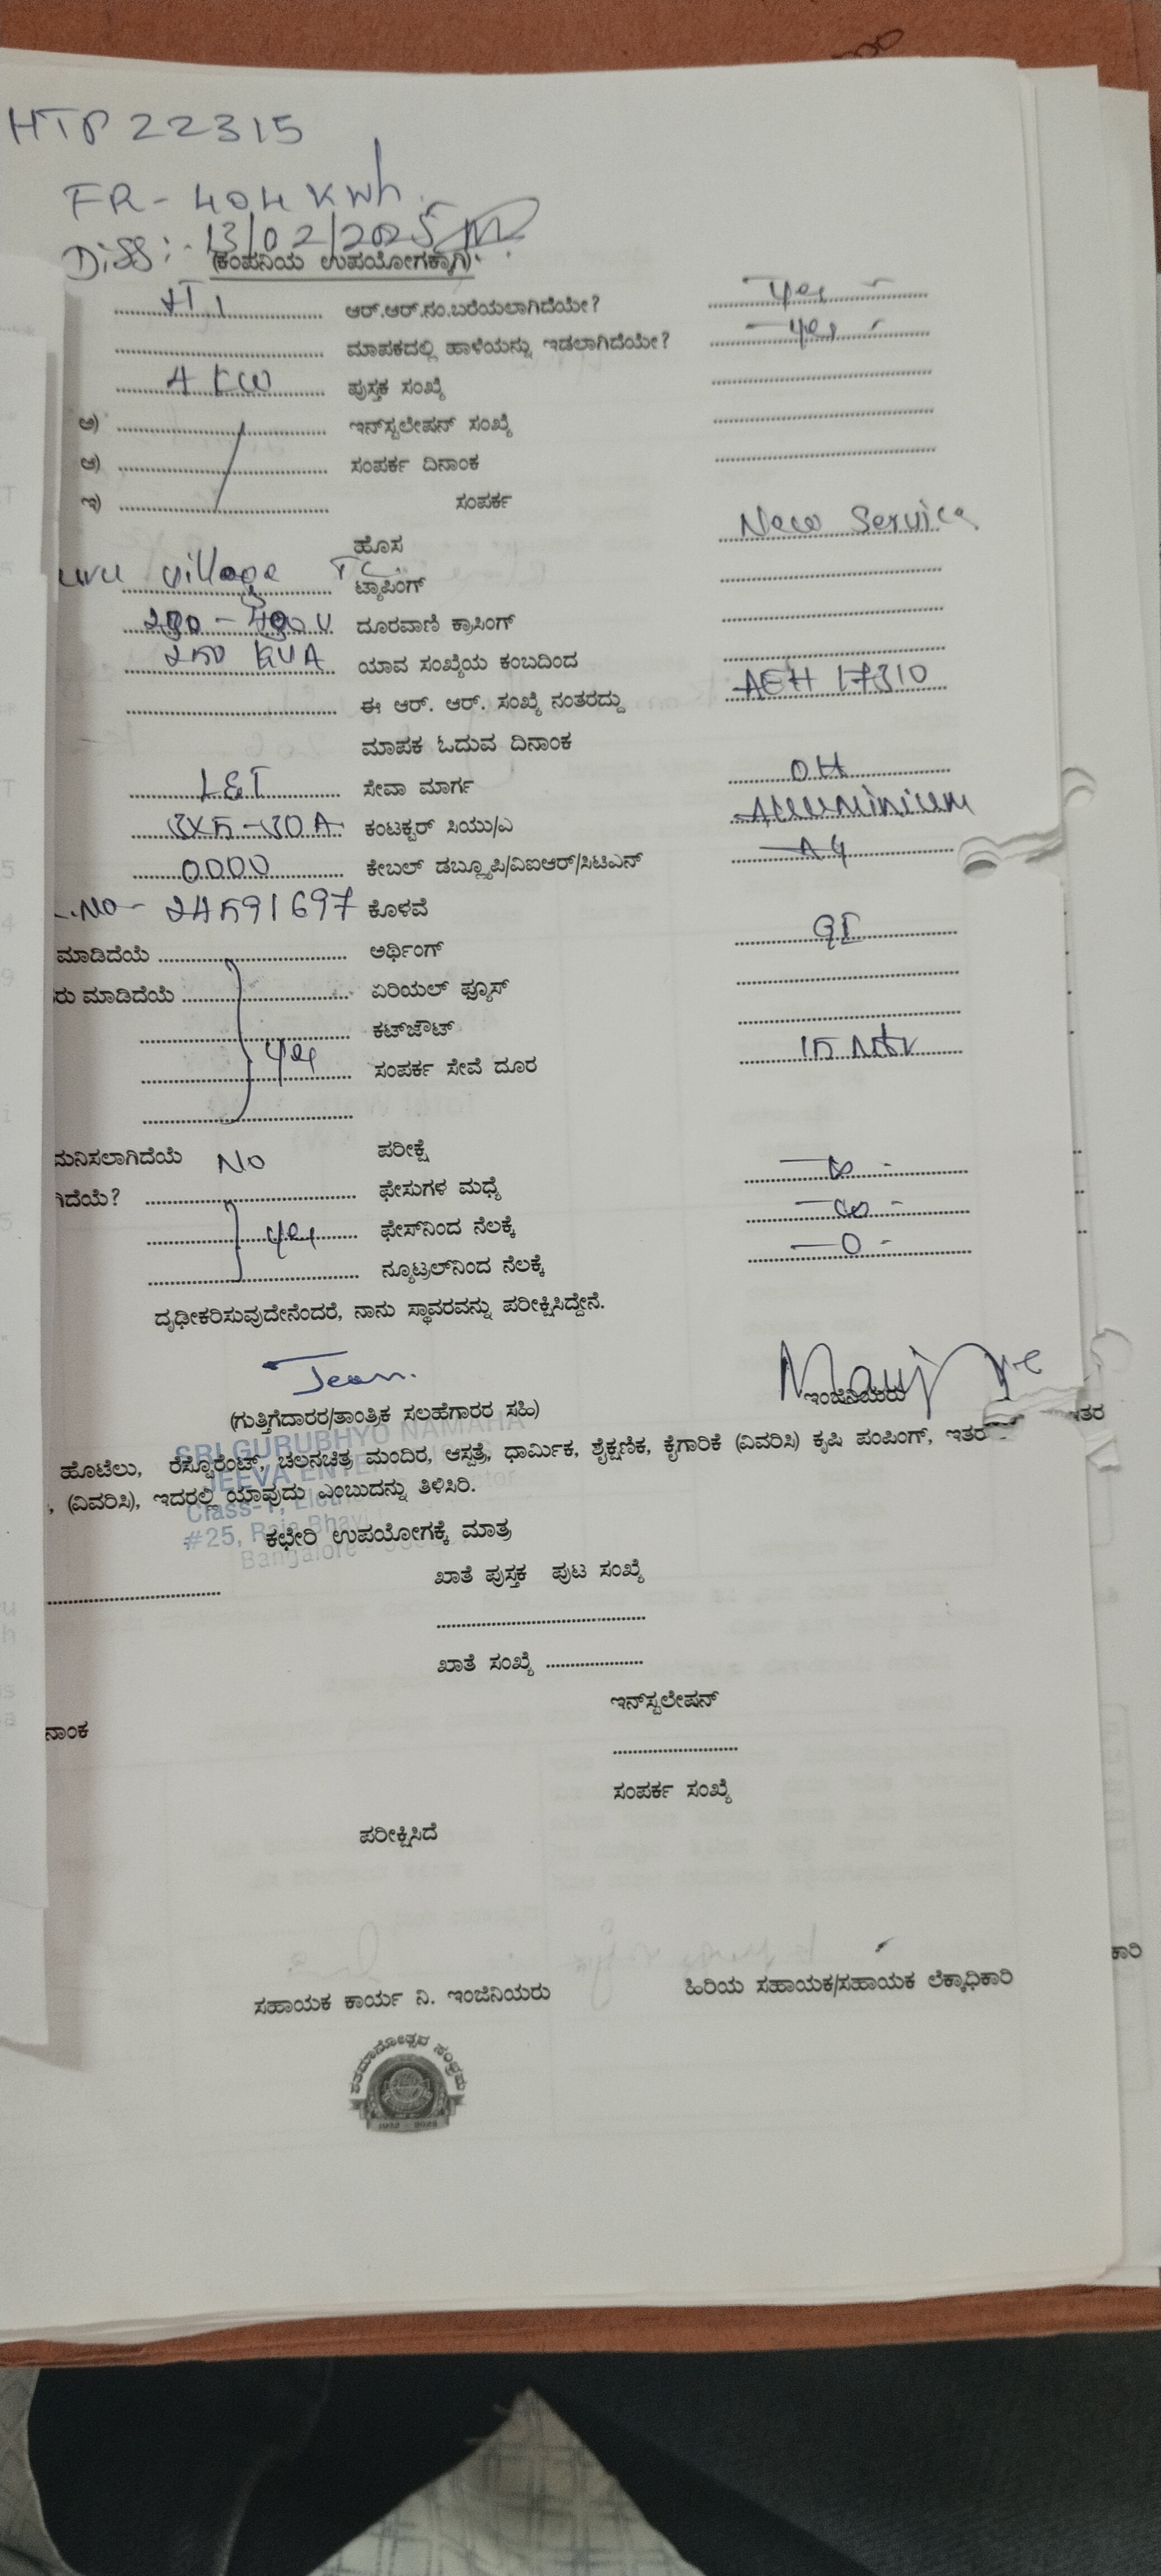 HTP 22315
FR - 404 KWh.
Diss:- 13/02/2025
(ಕಂಪನಿಯ ಉಪಯೋಗಕ್ಕಾಗಿ)
ಆರ್.ಆರ್.ನಂ.ಬರೆಯಲಾಗಿದೆಯೇ? Yes
ಮಾಪಕದಲ್ಲಿ ಹಾಳೆಯನ್ನು ಇಡಲಾಗಿದೆಯೇ? Yes
4 KW ಪುಸ್ತಕ ಸಂಖ್ಯೆ
ಅ) ಇನ್‌ಸ್ಟಲೇಷನ್ ಸಂಖ್ಯೆ
ಆ) ಸಂಪರ್ಕ ದಿನಾಂಕ
ಇ) ಸಂಪರ್ಕ
ಹೊಸ New Service
village TC. ಟ್ಯಾಪಿಂಗ್
ದೂರವಾಣಿ ಕ್ರಾಸಿಂಗ್
250 KVA ಯಾವ ಸಂಖ್ಯೆಯ ಕಂಬದಿಂದ
ಈ ಆರ್. ಆರ್. ಸಂಖ್ಯೆ ನಂತರದ್ದು AEH 17310
ಮಾಪಕ ಓದುವ ದಿನಾಂಕ
L&T ಸೇವಾ ಮಾರ್ಗ OH
3X5-30A ಕಂಟಕ್ಟರ್ ಸಿಯು/ಎ Alluminium
0000 ಕೇಬಲ್ ಡಬ್ಲ್ಯೂಪಿ/ವಿಐಆರ್/ಸಿಟಿಎನ್
.No- 24591697 ಕೊಳವೆ
ಮಾಡಿದೆಯೆ ಅರ್ಥಿಂಗ್ GI
ರು ಮಾಡಿದೆಯೆ ಏರಿಯಲ್ ಫ್ಯೂಸ್
ಕಟ್‌ಜೌಟ್
Yes ಸಂಪರ್ಕ ಸೇವೆ ದೂರ 15 Mtr
ಮನಿಸಲಾಗಿದೆಯೆ No ಪರೀಕ್ಷೆ
ಗಿದೆಯೆ? ಫೇಸುಗಳ ಮಧ್ಯೆ - ∞ -
Yes ಫೇಸ್‌ನಿಂದ ನೆಲಕ್ಕೆ - ∞ -
ನ್ಯೂಟ್ರಲ್‌ನಿಂದ ನೆಲಕ್ಕೆ - 0 -
ದೃಢೀಕರಿಸುವುದೇನೆಂದರೆ, ನಾನು ಸ್ಥಾವರವನ್ನು ಪರೀಕ್ಷಿಸಿದ್ದೇನೆ.
ಇಂಜಿನಿಯರು
(ಗುತ್ತಿಗೆದಾರರ/ತಾಂತ್ರಿಕ ಸಲಹೆಗಾರರ ಸಹಿ)
SRI GURUBHYO NAMAHA
ಹೊಟೆಲು, ರೆಸ್ಟೊರೆಂಟ್, ಚಲನಚಿತ್ರ ಮಂದಿರ, ಆಸ್ಪತ್ರೆ, ಧಾರ್ಮಿಕ, ಶೈಕ್ಷಣಿಕ, ಕೈಗಾರಿಕೆ (ವಿವರಿಸಿ) ಕೃಷಿ ಪಂಪಿಂಗ್, ಇತರ
JEEVA
, (ವಿವರಿಸಿ), ಇದರಲ್ಲಿ ಯಾವುದು ಎಂಬುದನ್ನು ತಿಳಿಸಿರಿ.
Class-1,
#25,
Bangalore -
ಕಛೇರಿ ಉಪಯೋಗಕ್ಕೆ ಮಾತ್ರ
ಖಾತೆ ಪುಸ್ತಕ ಪುಟ ಸಂಖ್ಯೆ
ಖಾತೆ ಸಂಖ್ಯೆ
ಇನ್‌ಸ್ಟಲೇಷನ್
ನಾಂಕ
ಸಂಪರ್ಕ ಸಂಖ್ಯೆ
ಪರೀಕ್ಷಿಸಿದೆ
ಸಹಾಯಕ ಕಾರ್ಯ ನಿ. ಇಂಜಿನಿಯರು ಹಿರಿಯ ಸಹಾಯಕ/ಸಹಾಯಕ ಲೆಕ್ಕಾಧಿಕಾರಿ
ಶತಮಾನೋತ್ಸವ ಸಂಭ್ರಮ